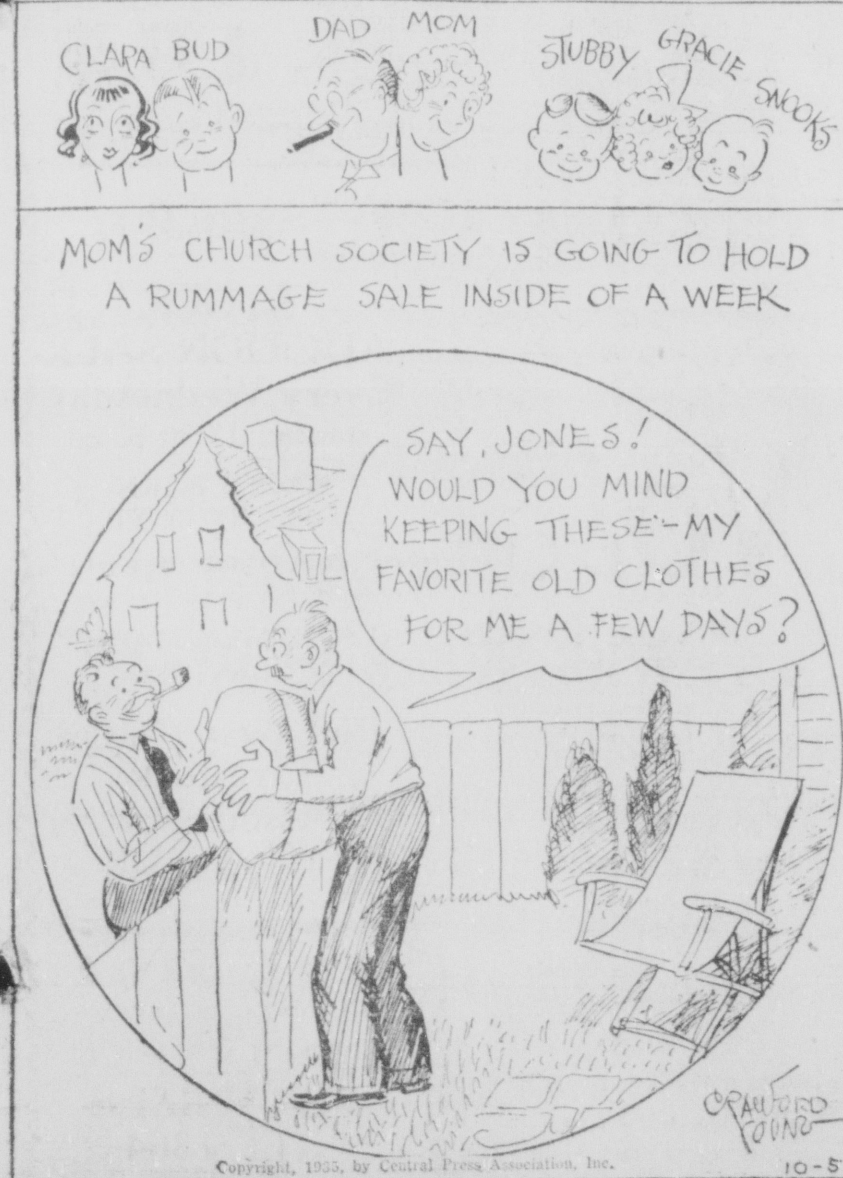 CLARA BUD DAD MOM STUBBY GRACIE SNOOKS
MOM'S CHURCH SOCIETY IS GOING TO HOLD
A RUMMAGE SALE INSIDE OF A WEEK
SAY, JONES!
WOULD YOU MIND
KEEPING THESE - MY
FAVORITE OLD CLOTHES
FOR ME A FEW DAYS?
CRAWFORD
YOUNG
Copyright, 1935, by Central Press Association, Inc.
10-5